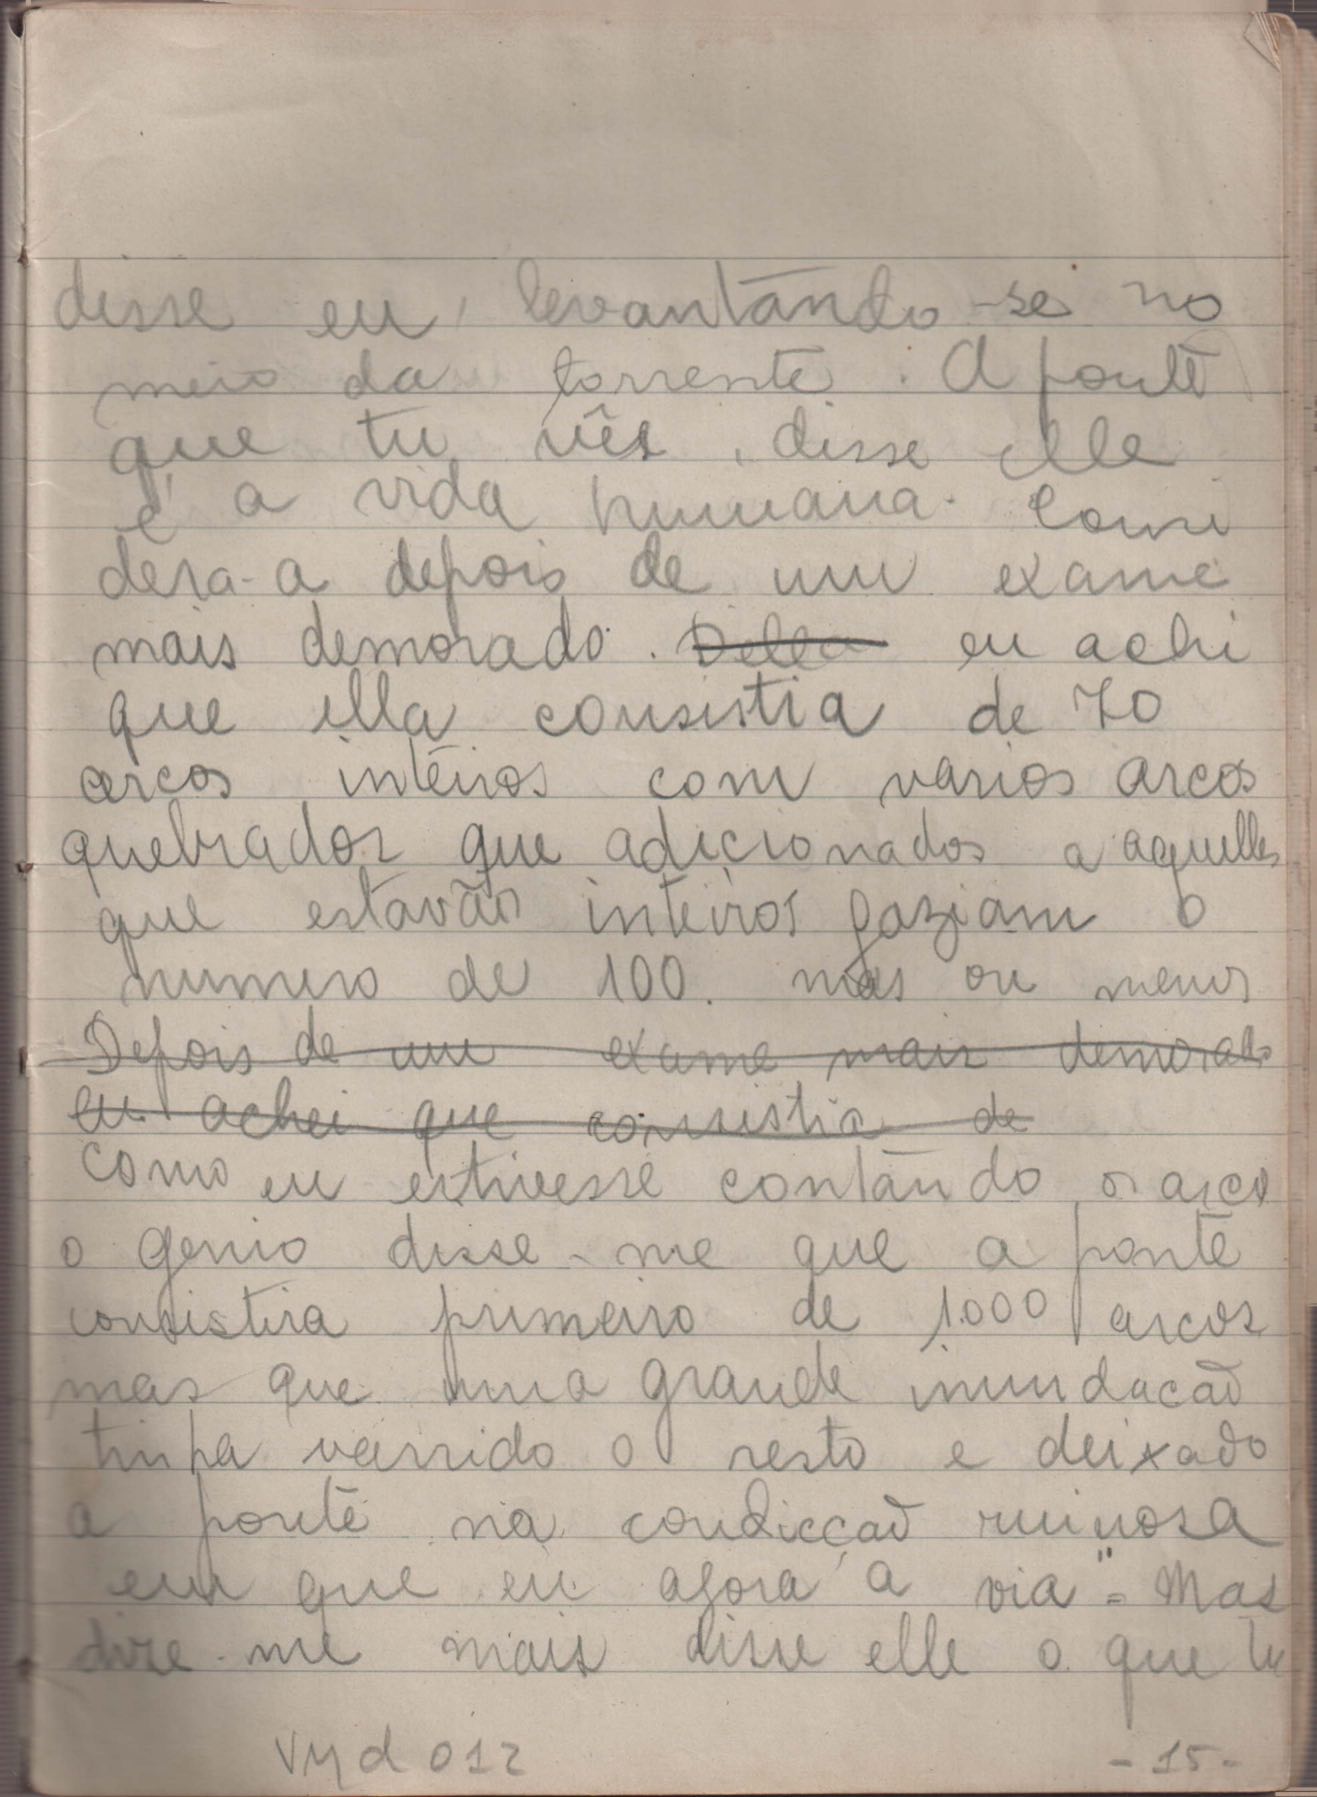 disse eu, levantando-se no
meio da torrente. A ponte
que tu vês, disse elle
é a vida humana. Consi
dera-a depois de um exame
mais demorado. Della eu achi
que ella consistia de 70
arcos inteiros com varios arcos
quebrados que adicionados a aquelles
que estavão inteiros faziam o
numero de 100. mas ou menos
Depois de um exame mais demorado
eu achei que consistia de
Como eu estivesse contando os arcos
o genio disse-me que a ponte
consistira primeiro de 1.000 arcos
mas que uma grande inundacão
tinha varrido o resto e deixado
a ponte na condicção ruinosa
em que eu agora a via" = Mas
dize-me mais disse elle o que tu
Vyd 012 -15-